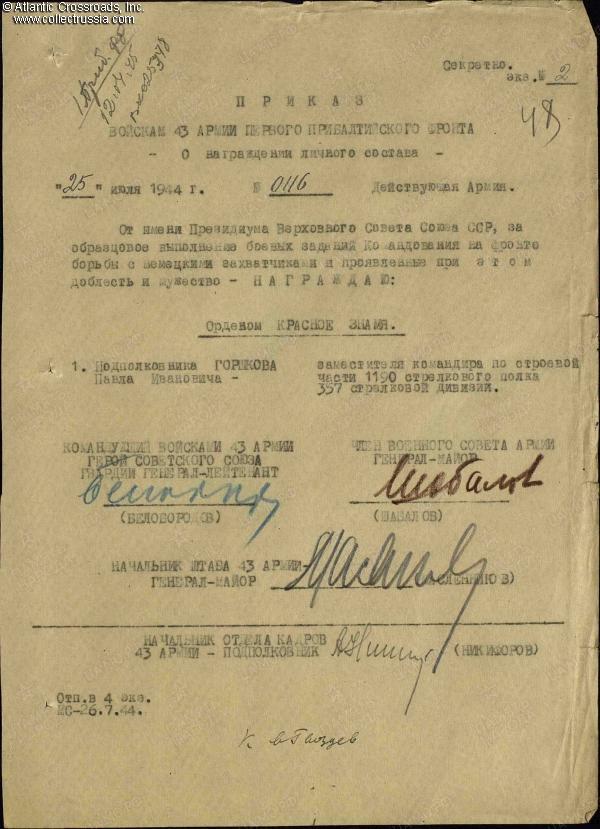 © Atlantic Crossroads, Inc.
www.collectrussia.com
Секретно.
экз.№ 2
П Р И К А З
ВОЙСКАМ 43 АРМИИ ПЕРВОГО ПРИБАЛТИЙСКОГО ФРОНТА
- О награждении личного состава -
"25" июля 1944 г. № 0116 Действующая Армия.
От имени Президиума Верховного Совета Союза ССР, за
образцовое выполнение боевых заданий Командования на фронте
борьбы с немецкими захватчиками и проявленные при этом
доблесть и мужество - Н А Г Р А Ж Д А Ю:
Орденом КРАСНОЕ ЗНАМЯ.
1. Подполковника ГОРШКОВА заместителя командира по строевой
Павла Ивановича - части 1190 стрелкового полка
357 стрелковой дивизии.
КОМАНДУЩИЙ ВОЙСКАМИ 43 АРМИИ ЧЛЕН ВОЕННОГО СОВЕТА АРМИИ
ГЕРОЙ СОВЕТСКОГО СОЮЗА ГЕНЕРАЛ-МАЙОР
ГВАРДИИ ГЕНЕРАЛ-ЛЕЙТЕНАНТ
(БЕЛОБОРОДОВ) (ШАБАЛОВ)
НАЧАЛЬНИК ШТАБА 43 АРМИИ
ГЕНЕРАЛ-МАЙОР
НАЧАЛЬНИК ОТДЕЛА КАДРОВ
43 АРМИИ - ПОДПОЛКОВНИК (НИКИФОРОВ)
Отп.в 4 экз.
МС-26.7.44.